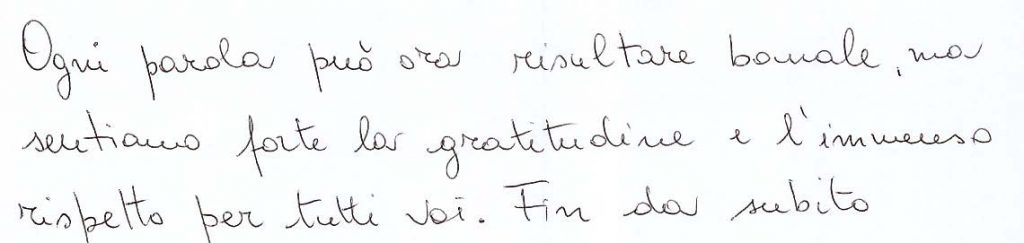 Ogni parola può ora risultare banale, ma
sentiamo forte la gratitudine e l'immenso
rispetto per tutti voi. Fin da subito